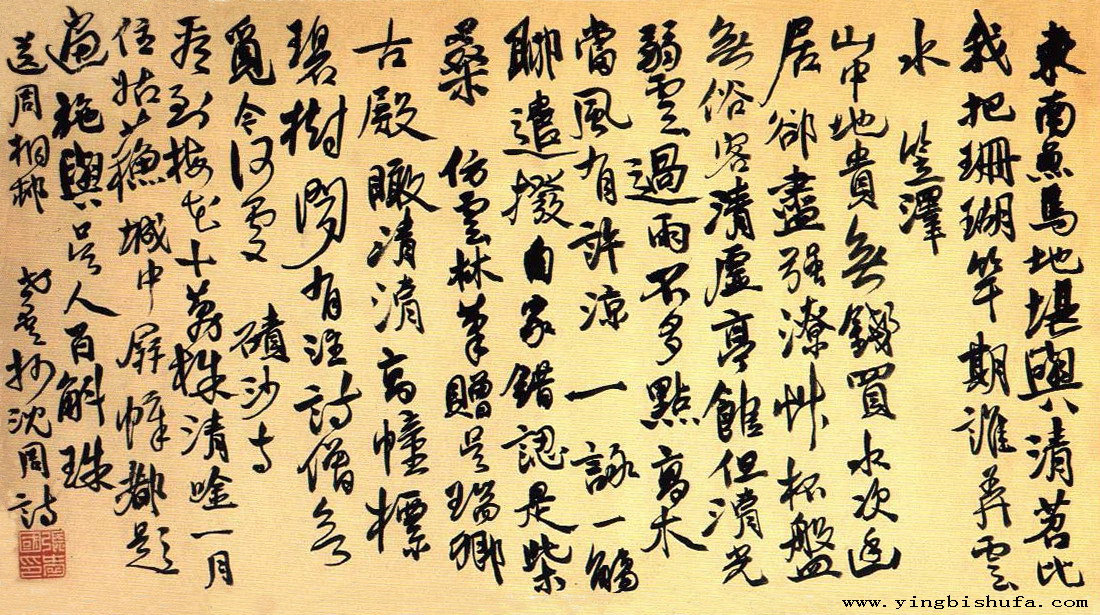 東南魚鳥地堪輿清茗比
我把珊瑚竿期誰弄雲
水 笠澤
山中地貴無錢買水次幽
居卻盡强潦艸杯盤
無俗客清虛亭館但清光
弱雲過雨不多點高木
當風有許涼一詠一觴
聊遣撥自家錯認是柴
桑 仿雲林筆贈吳瑞卿
古殿瞰清漪高幢標
碧樹閒有注詩僧
覓今何處 磧沙寺
看到梅花十萬株清唫一月
住姑蘇城中屏幛都題
遍施與吳人百斛珠
送周桐邨 抄沈周詩
www.yingbishufa.com